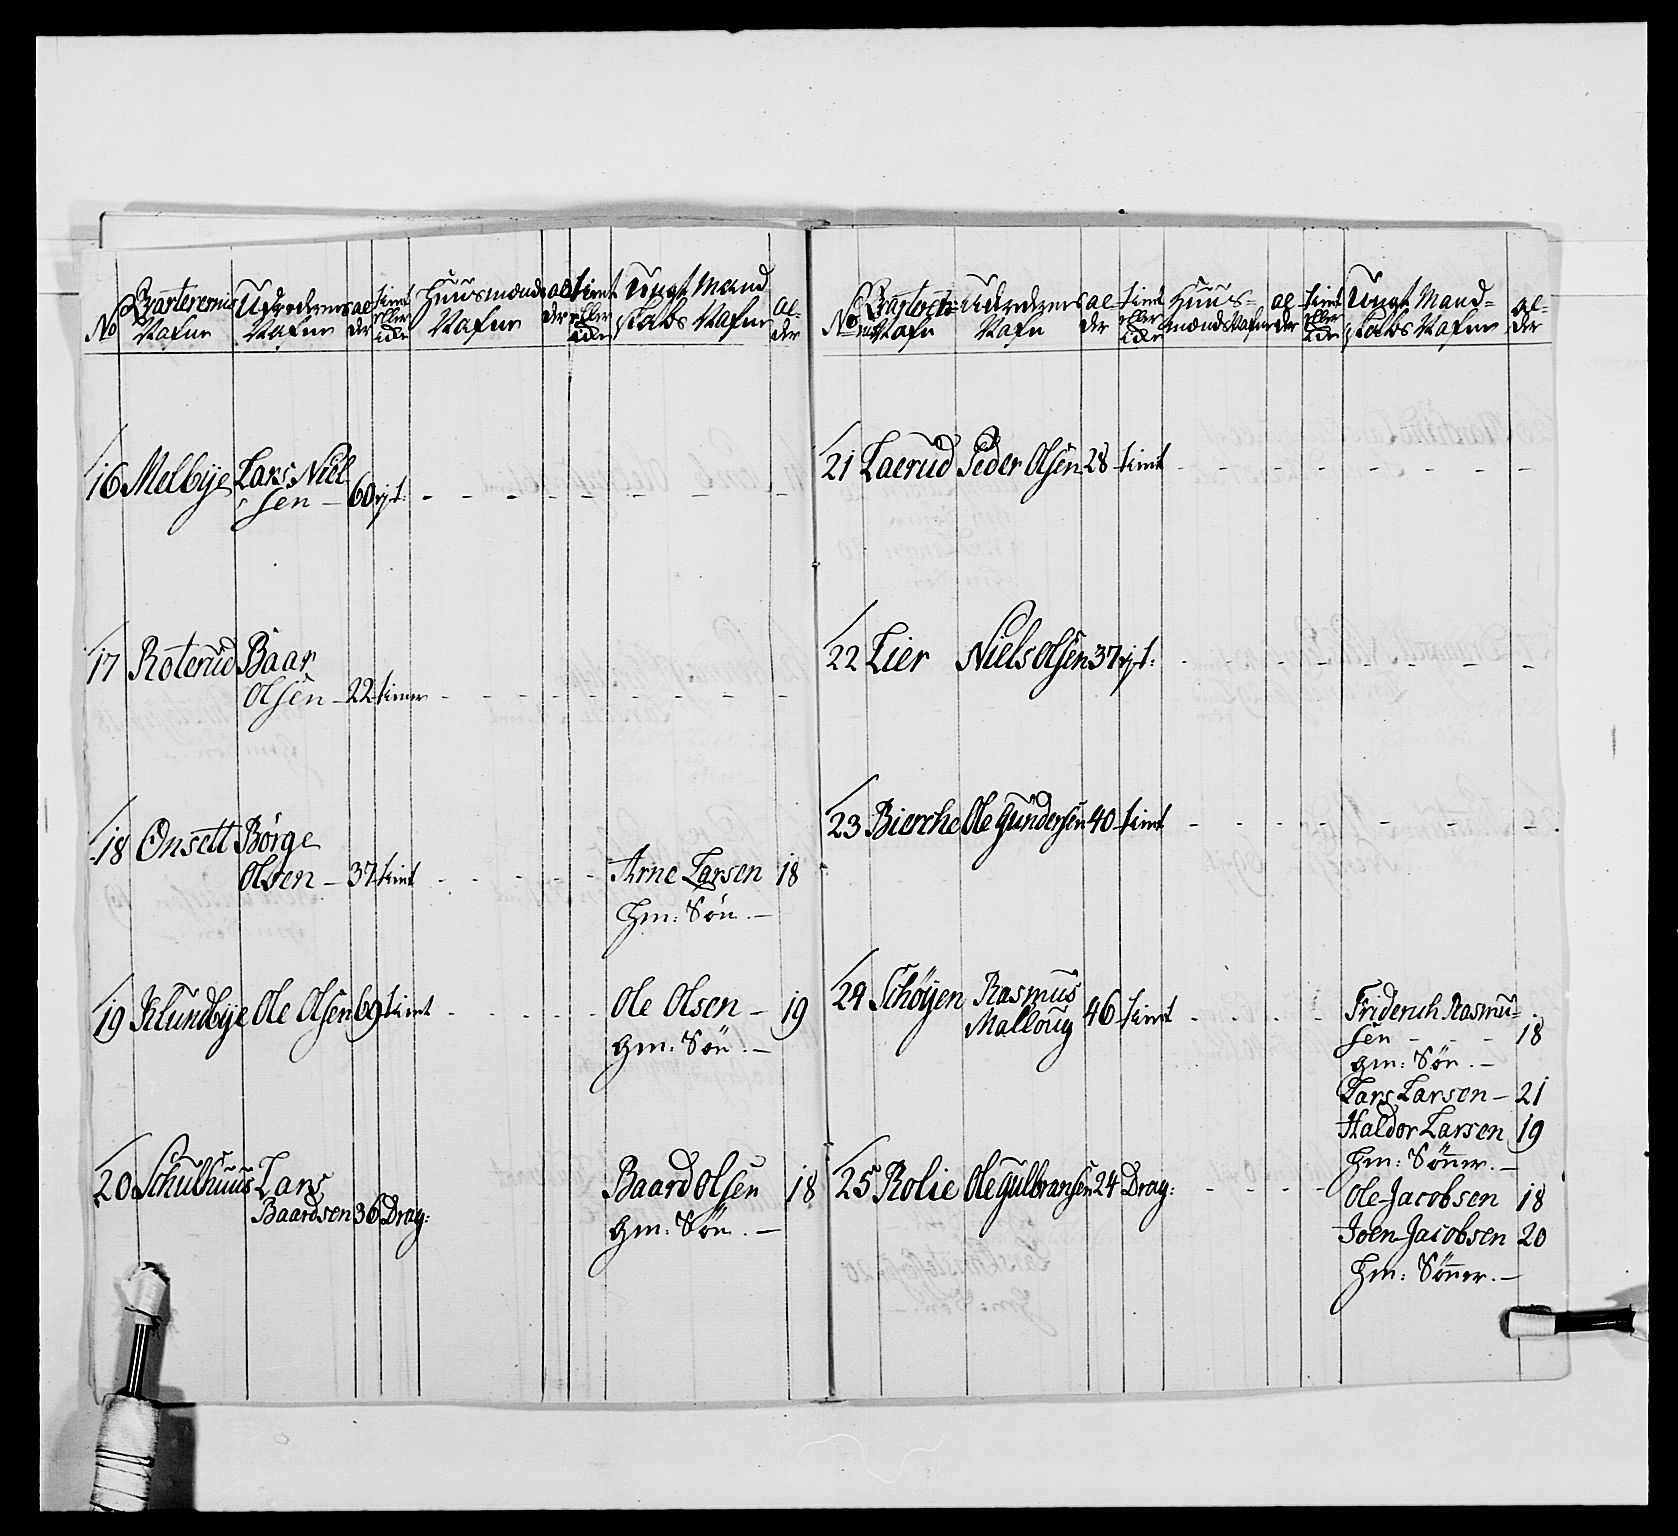 No Qvarterernis Nafne Udredernes Nafne alder tient eller ickе Huusmænds Nafne alder tient eller icke Ungt Mandskabs Nafne alder
16 Melbye Lars Niel
sen — 60 rjt:
17 Roterud Baar
Olsen — 22 tiener
18 Onsett Børge
Olsen — 37 tient Arne Larsen 18
hm: Søn. —
19 Klundbye Ole Olsen 69 tient Ole Olsen — 19
hm: Søn. —
20 Schulhuus Lars
Baardsen 36 Drag: Baard Olsen 18
hm: Søn. —
No Nafn Udredernes Nafn alder tient eller icke Huusmænds Nafne alder tient eller icke Ungt Mandskabs Nafne alder
21 Laerud Peder Olsen 28 tient
22 Lier Niels Olsen 37 rjt:
23 Bierche Ole Gundersen 40 tient
24 Schøyen Rasmus
Malloug 46 tient Friderich Rasmu-
sen - - - 18
hm: Søn. —
Lars Larsen — 21
Haldor Larsen 19
hm: Sønner. —
25 Rolie Ole Gulbransen 24 Drag: Ole Jacobsen 18
Joen Jacobsen 20
hm: Sønner. —